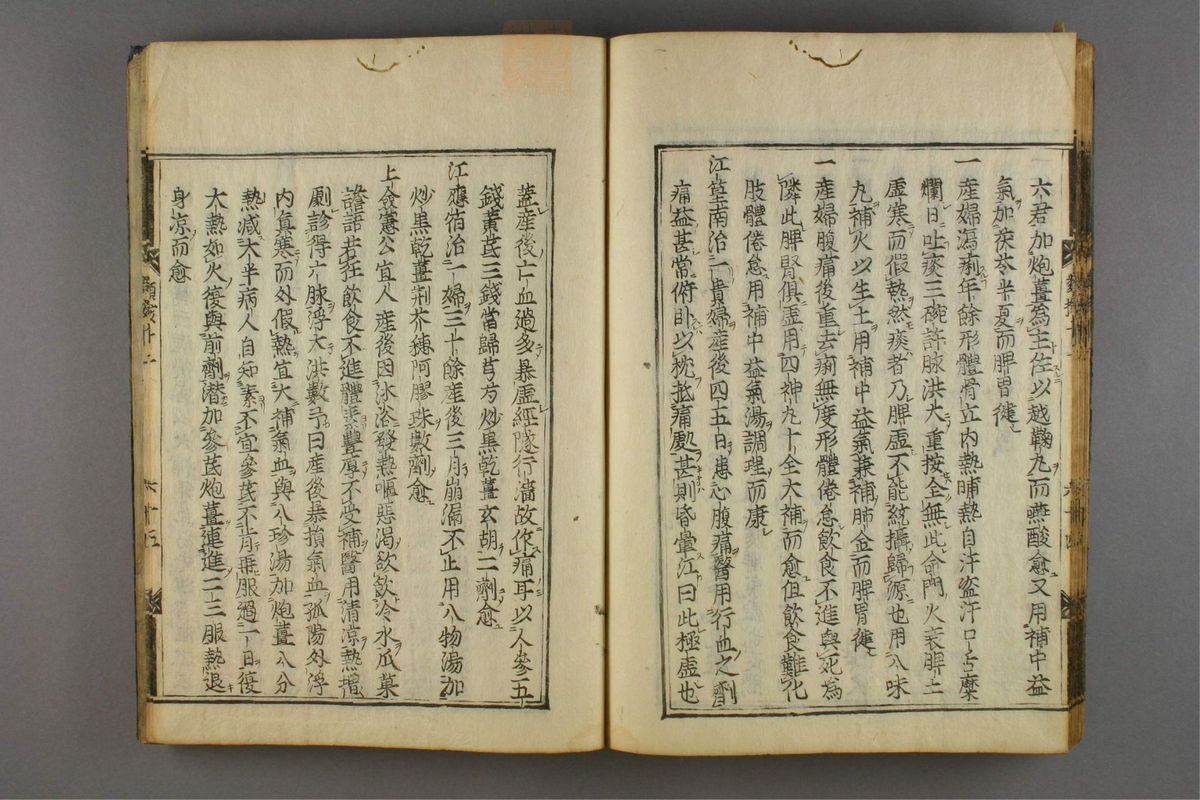 六君加炮薑為主佐以越鞠丸而嚥酸愈又用補中益
氣加茯苓半夏而脾胃健
一産婦瀉痢年餘形體骨立内熱晡熱自汗盗汗口舌糜
爛日吐痰三碗許脉洪大重按全無此命門火衰脾土
虚寒而假熱然痰者乃脾虚不能統攝歸源也用八味
丸補火以生土用補中益氣兼補肺金而脾胃健
一産婦腹痛後重去痢無度形體倦怠飲食不進與死為
隣此脾腎俱虚用四神丸十全大補而愈但飲食難化
肢體倦怠用補中益氣湯調理而康
江篁南治一貴婦産後四五日患心腹痛醫用行血之劑
痛益甚常俯卧以枕抵痛處甚則昏暈江曰此極虚也
蓋産後亡血過多暴虚經隧行濇故作痛耳以人參五
錢黄芪三錢當歸芎芍炒黒乾薑玄胡二劑愈
江應宿治一婦三十餘産後三月崩漏不止用八物湯加
炒黒乾薑荆芥穂阿膠珠數劑愈
上舍憲公宜人産後因沐浴發熱嘔惡渴欲飲冷水瓜菓
譫語若狂飲食不進體素豐厚不受補醫用清涼熱增
劇診得六脉浮大洪數予曰産後暴損氣血孤陽外浮
内真寒而外假熱宜大補氣血與八珍湯加炮薑八分
熱减大半病人自知素不宜參芪不肯再服過一日復
大熱如火復與前劑潛加參芪炮薑連進二三服熱退
身涼而愈
六十三